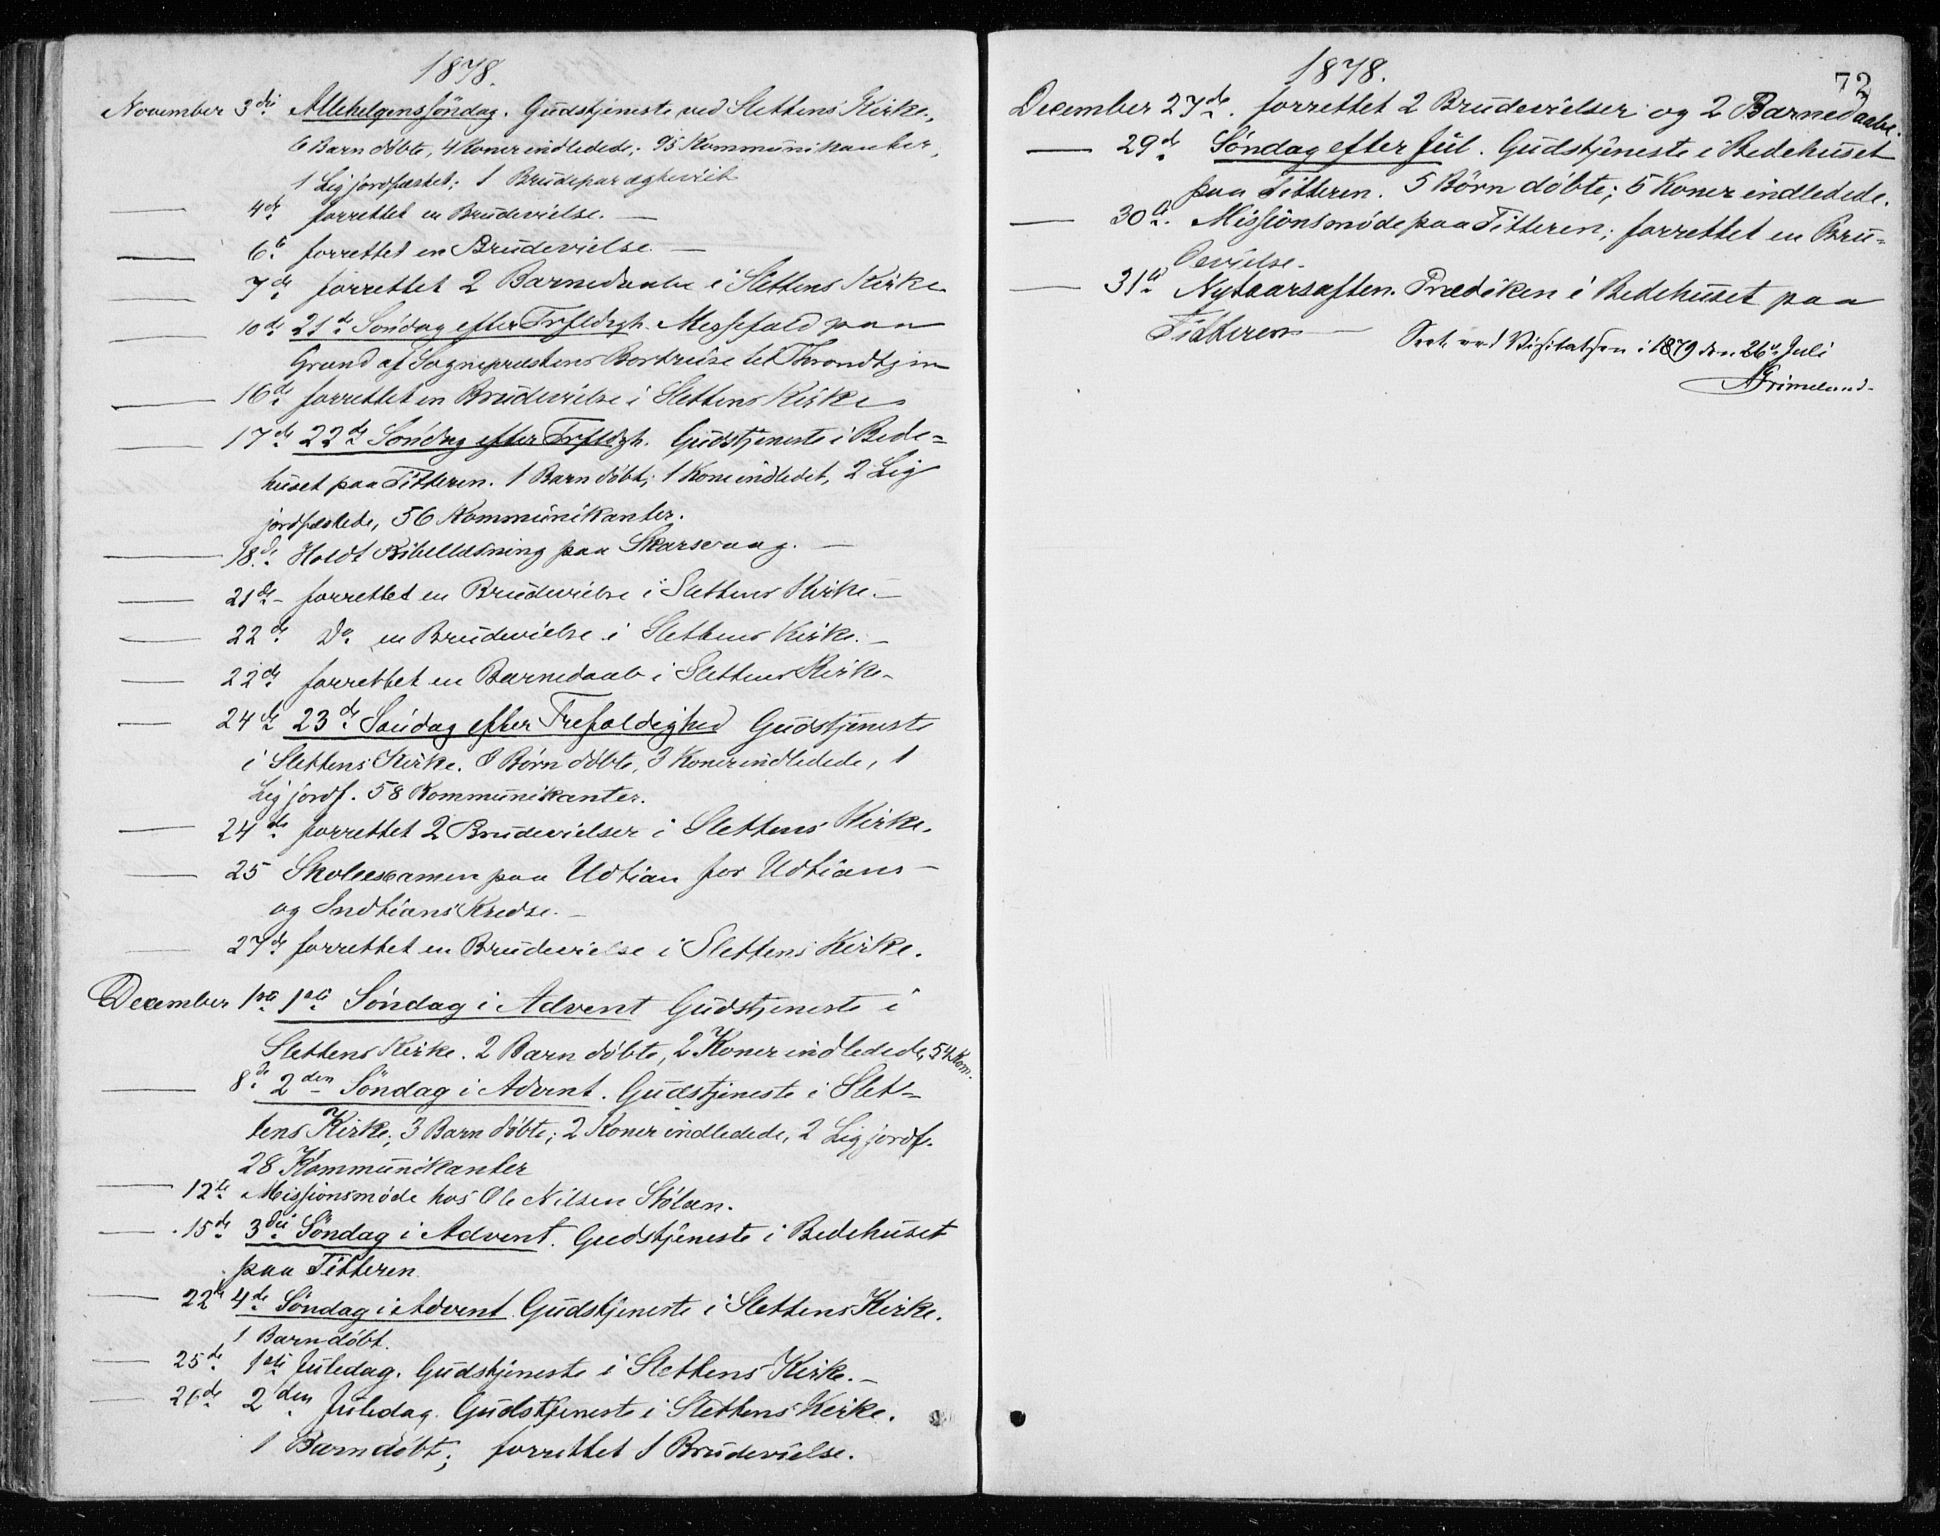 1878.
November 3die Allehelgenssöndag. Gudstjeneste ved Slettens Kirke.
6 Barn döbte, 4 Koner indledede; 95 Kommunikanter,
1 Lig jordfæstet; 1 Brudepar ægteviet
— 4de forrettet en Brudevielse. —
— 6te forrettet en Brudevielse. —
— 7de forrettet 2 Barnedaabe i Slettens Kirke
— 10de 21de Söndag efter Trfldgh. Messefald paa
Grund af Sognepræstens Bortreise til Throndhjem
— 16de forrettet en Brudevielse i Slettens Kirke
— 17de 22de Söndag efter Trfldgh. Gudstjeneste i Bede=
huset paa Titteren. 1 Barn döbt; 1 Kone indledet, 2 Lig
jordfæstede, 56 Kommunikanter.
— 18de Holdt Bibellæsning paa Skarsvaag. —
— 21de – forrettet en Brudevielse i Slettens Kirke. —
— 22de Do en Brudevielse i Slettens Kirke. —
— 22de forrettet en Barnedaab i Slettens Kirke –
— 24de 23de Söndag efter Trefoldighed Gudstjeneste
i Slettens Kirke. 8 Börn döbte, 3 Koner indledede, 1
Lig jordf. 58 Kommunikanter.
— 24de forrettet 2 Brudevielser i Slettens Kirke.
— 25 Skoleexamen paa Udtian for Udtians –
og Indtians Kredse. –
— 27de forrettet en Brudevielse i Slettens Kirke.
December 1ste 1ste Söndag i Advent Gudstjeneste i
Slettens Kirke. 2 Barn döbte, 2 Koner indledede, 54 Kom.
— 8de 2den Söndag i Advent. Gudstjeneste i Slet=
tens Kirke; 3 Barn döbte; 2 Koner indledede, 2 Lig jordf.
28 Kommunikanter
— 12te Missionsmöde hos Ole Nilsen Stölan.
— 15de 3die Söndag i Advent. Gudstjeneste i Bedehuset
paa Titteren.
— 22de 4de Söndag i Advent. Gudstjeneste i Slettens Kirke.
1 Barn döbt.
— 25de 1ste Juledag. Gudstjeneste i Slettens Kirke. –
— 26de 2den Juledag. Gudstjeneste i Slettens Kirke.
1 Barn döbt; forrettet 1 Brudevielse.
1878.
72
December 27de. forrettet 2 Brudevielser og 2 Barnedaabe.
— 29de Söndag efter Jul. Gudstjeneste i Bedehuset
paa Titteren. 5 Börn döbte; 5 Koner indledede.
— 30te. Missionsmöde paa Titteren; forrettet en Bru=
devielse.
— 31te Nytaarsaften. Prædiken i Bedehuset paa
Titteren —
Seet ved Visitatsen i 1879 den 26de Juli
Grimelund.